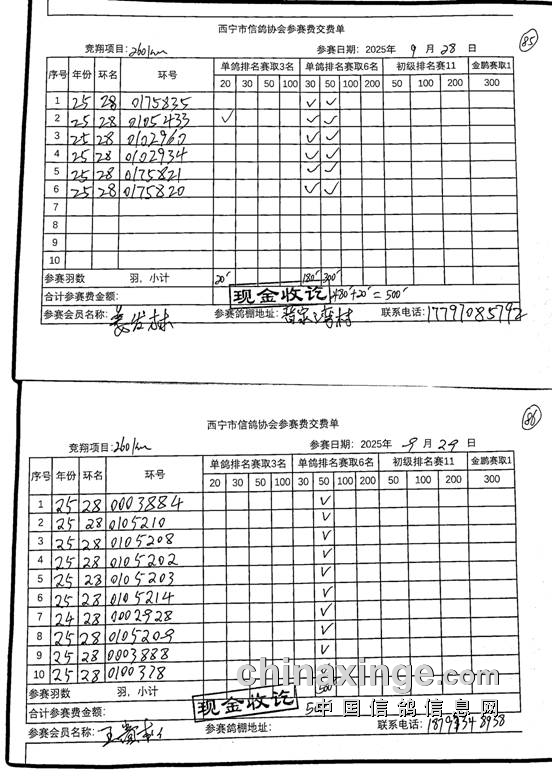 西宁市信鸽协会参赛费交费单
85
竞翔项目：260km 参赛日期：2025年 9 月 28 日
序号 年份 环名 环号 单鸽排名赛取3名 单鸽排名赛取6名 初级排名赛11 金鹏赛取1
20 30 50 100 30 50 100 200 50 100 200 300
1 25 28 0175835 ✓ ✓
2 25 28 0105433 ✓ ✓ ✓
3 25 28 010296 ✓ ✓
4 25 28 0102934 ✓ ✓
5 25 28 0175821 ✓ ✓
6 25 28 0175820 ✓ ✓
7
8
9
10
参赛羽数 羽，小计 20 180 300
合计参赛费金额： 现金收讫 480+20=500
参赛会员名称： 发林 参赛鸽棚地址： 家湾村 联系电话：17797085792
西宁市信鸽协会参赛费交费单
86
竞翔项目：260km 参赛日期：2025年 9 月 29 日
序号 年份 环名 环号 单鸽排名赛取3名 单鸽排名赛取6名 初级排名赛11 金鹏赛取1
20 30 50 100 30 50 100 200 50 100 200 300
1 25 28 0003884 ✓
2 25 28 0105210 ✓
3 25 28 0105208 ✓
4 25 28 0105202 ✓
5 25 28 0105203 ✓
6 25 28 0105214 ✓
7 24 28 0002928 ✓
8 25 28 0105209 ✓
9 25 28 0003888 ✓
10 25 28 0100378
chinaxinge.com
参赛羽数 羽，小计 500
合计参赛费金额： 现金收讫
中国信鸽信息网
参赛会员名称：王 参赛鸽棚地址： 联系电话：